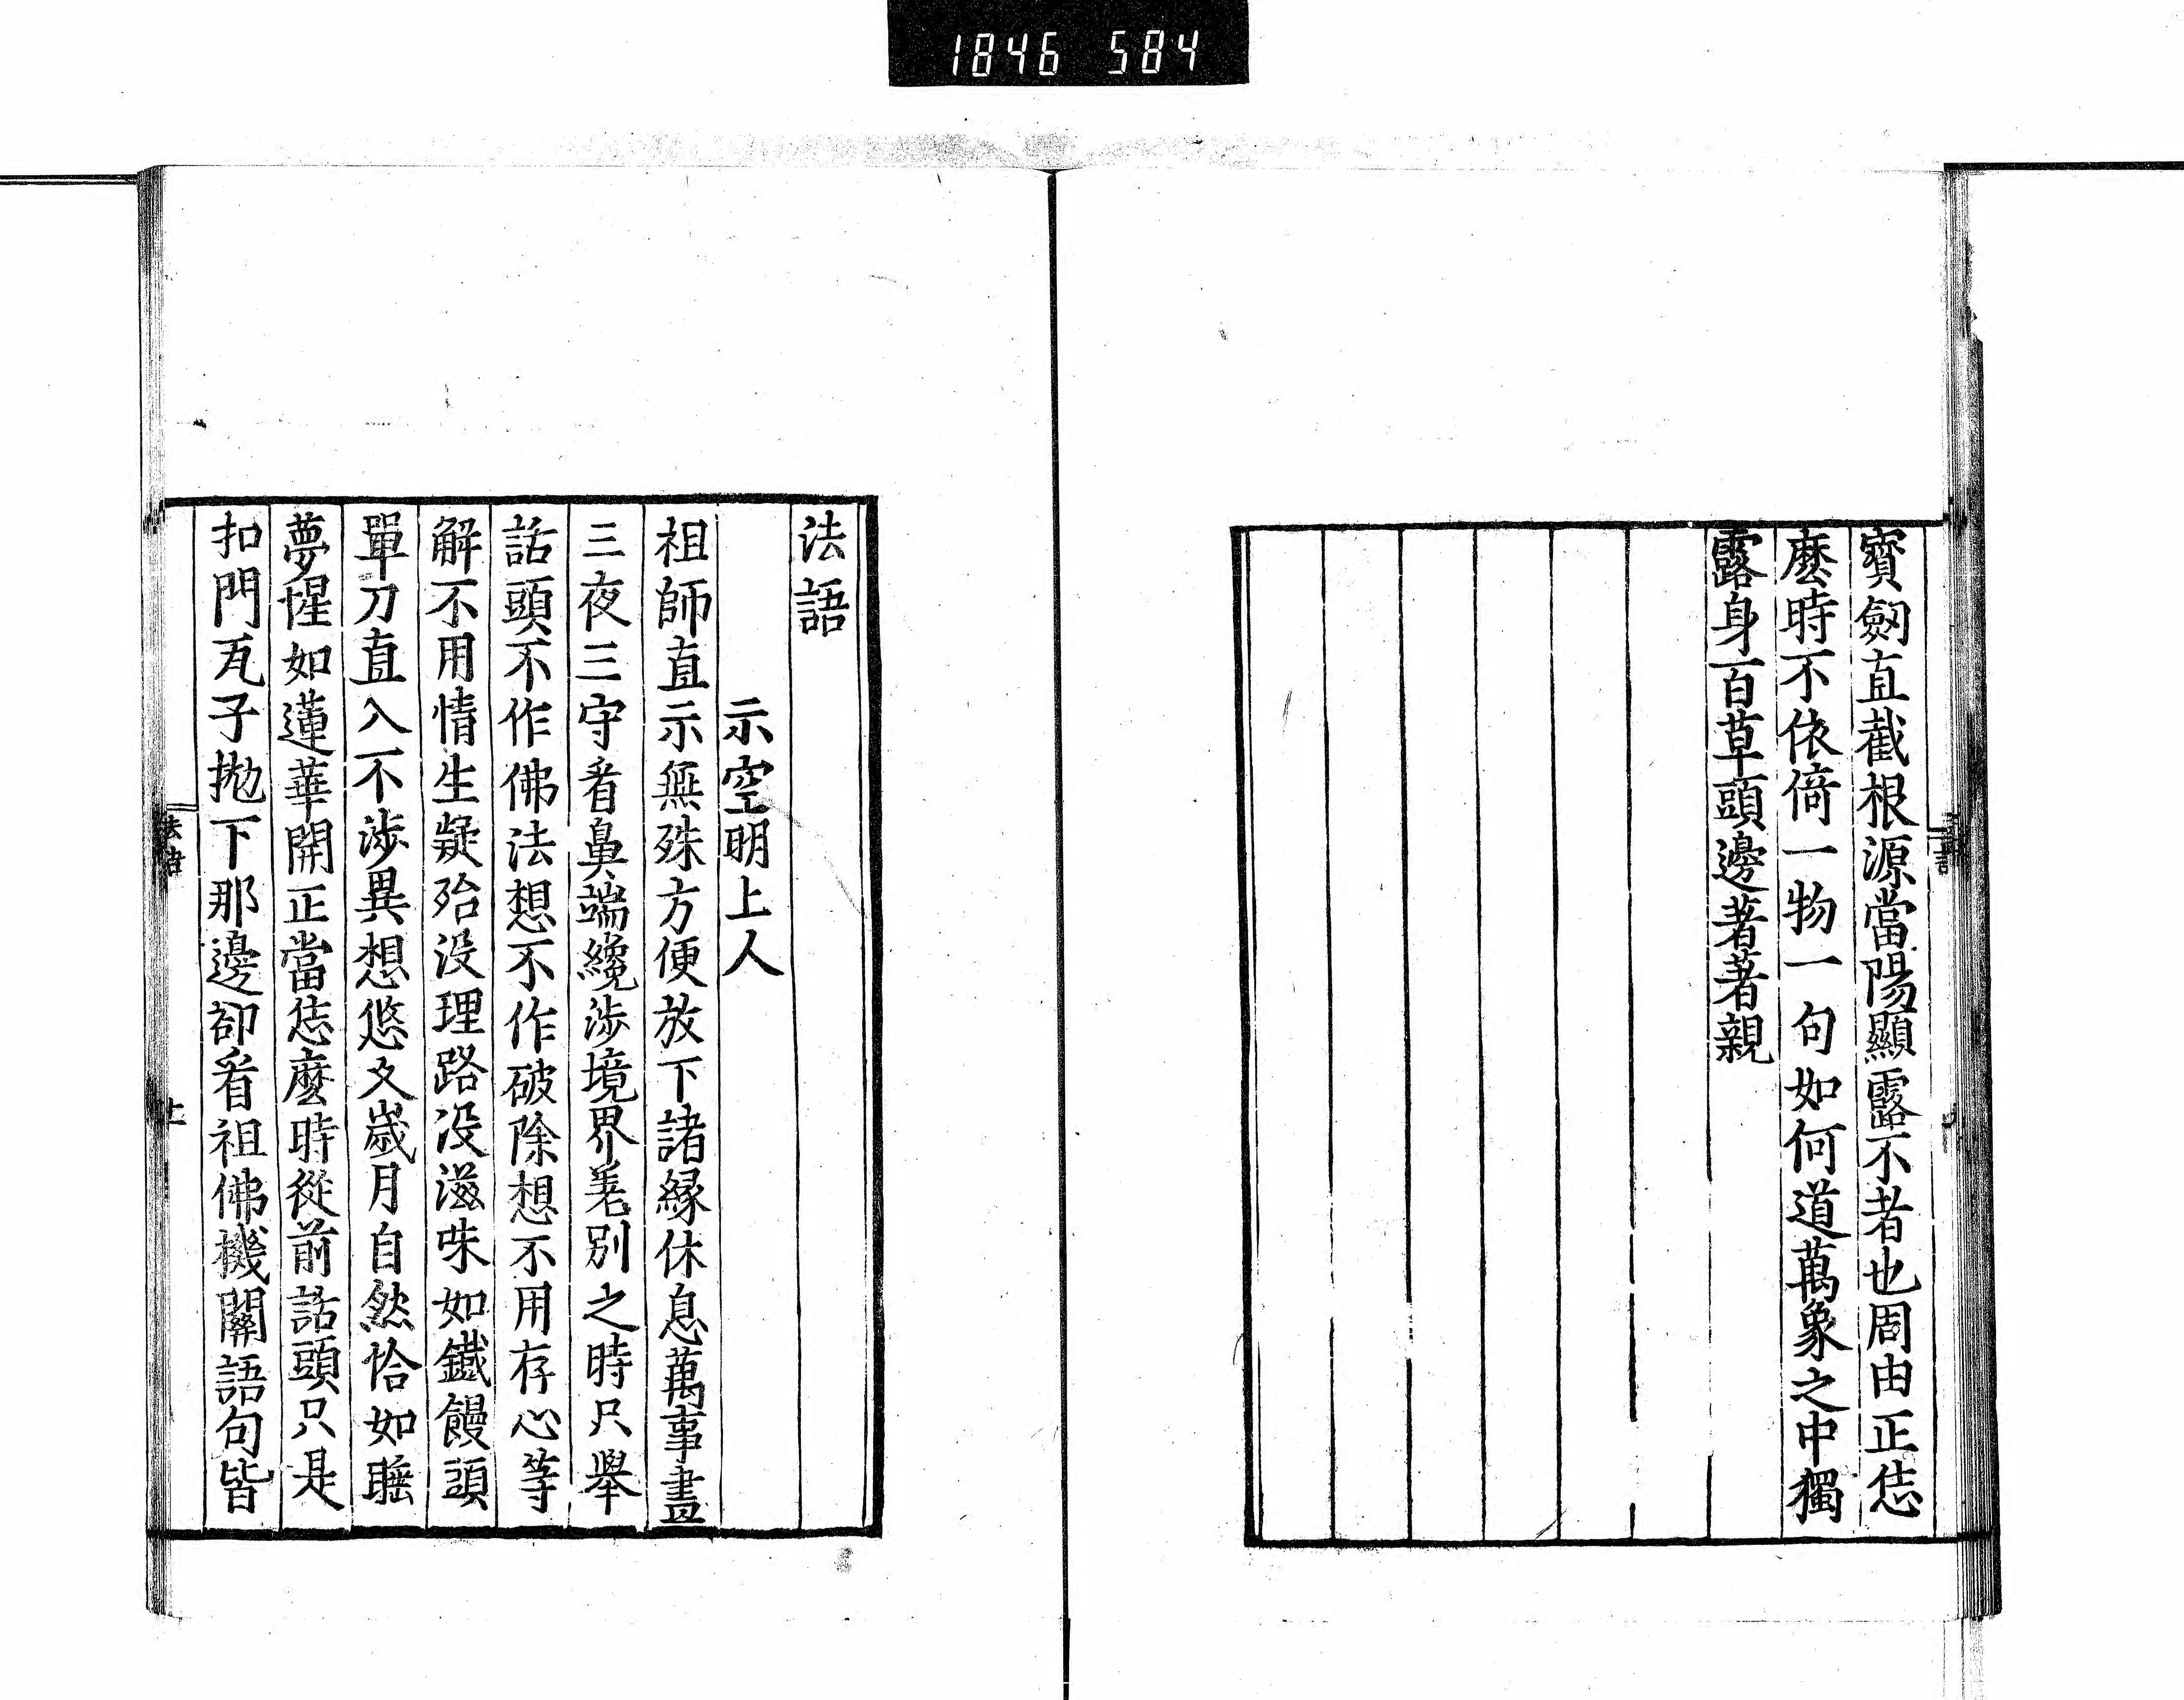 1846 584
寳劔直截根源當陽顯露不者也周由正恁
麽時不依倚一物一句如何道萬象之中獨
露身百草頭邊著著親
法語
示空明上人
祖師直示無殊方便放下諸縁休息萬事晝
三夜三守看鼻端纔渉境界差別之時只舉
話頭不作佛法想不作破除想不用存心等
解不用情生疑殆没理路没滋味如鐵饅頭
單刀直入不渉異想悠久歳月自然恰如睡
夢惺如蓮華開正當恁麽時從前話頭只是
扣門瓦子抛下那邊卻看祖佛機關語句皆